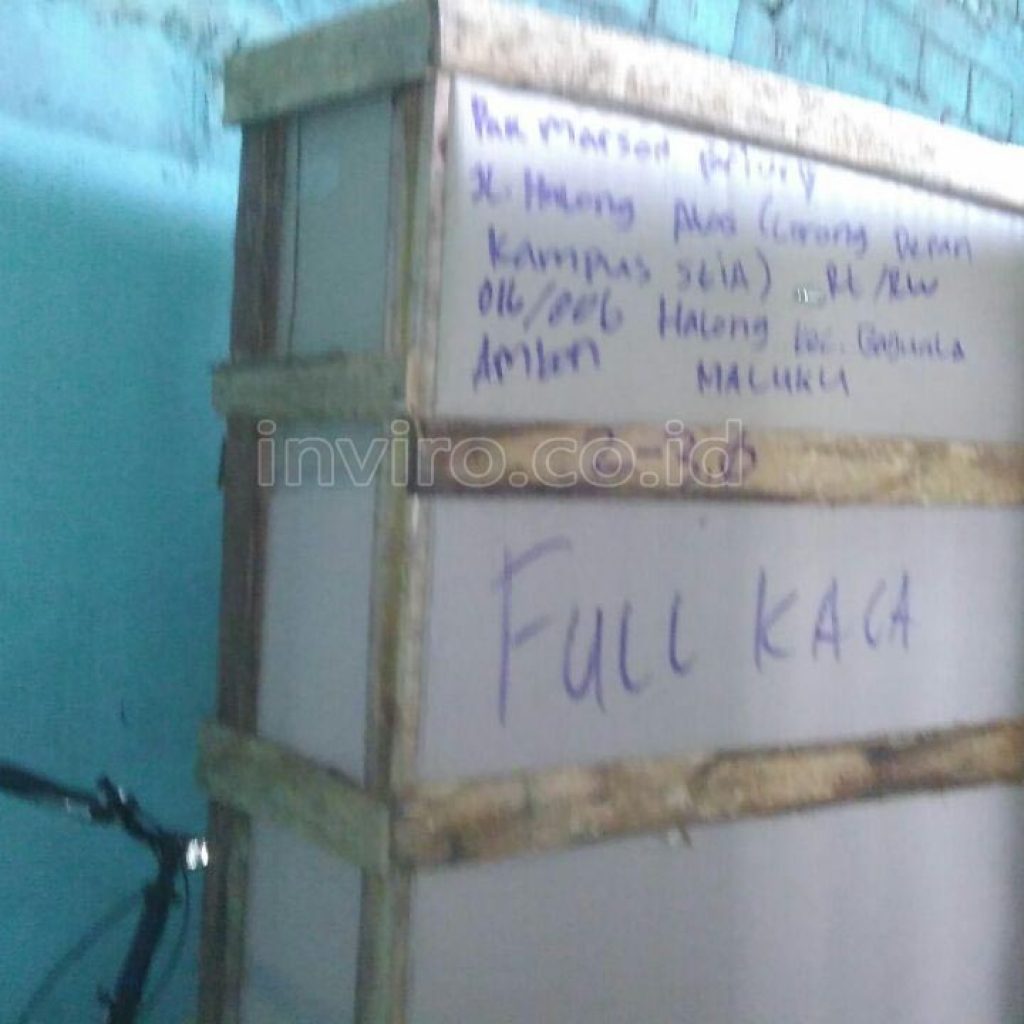 Pak Marsel
Jl. Halong Atas (Lorong Depan
Kampus STIA) Rt/RW
016/006 Halong kec. Baguala
Ambon MALUKU
inviro.co.id
FULL KACA